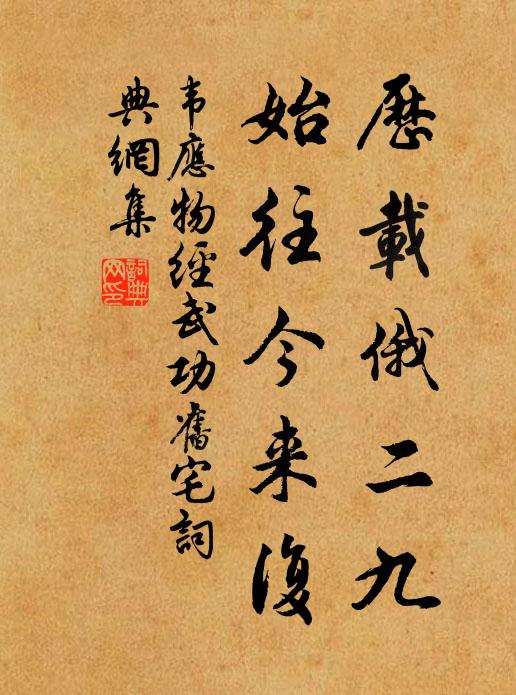 歷載俄二九
始往今来復
韦應物經武功舊宅詞
典網集
詞典
网印